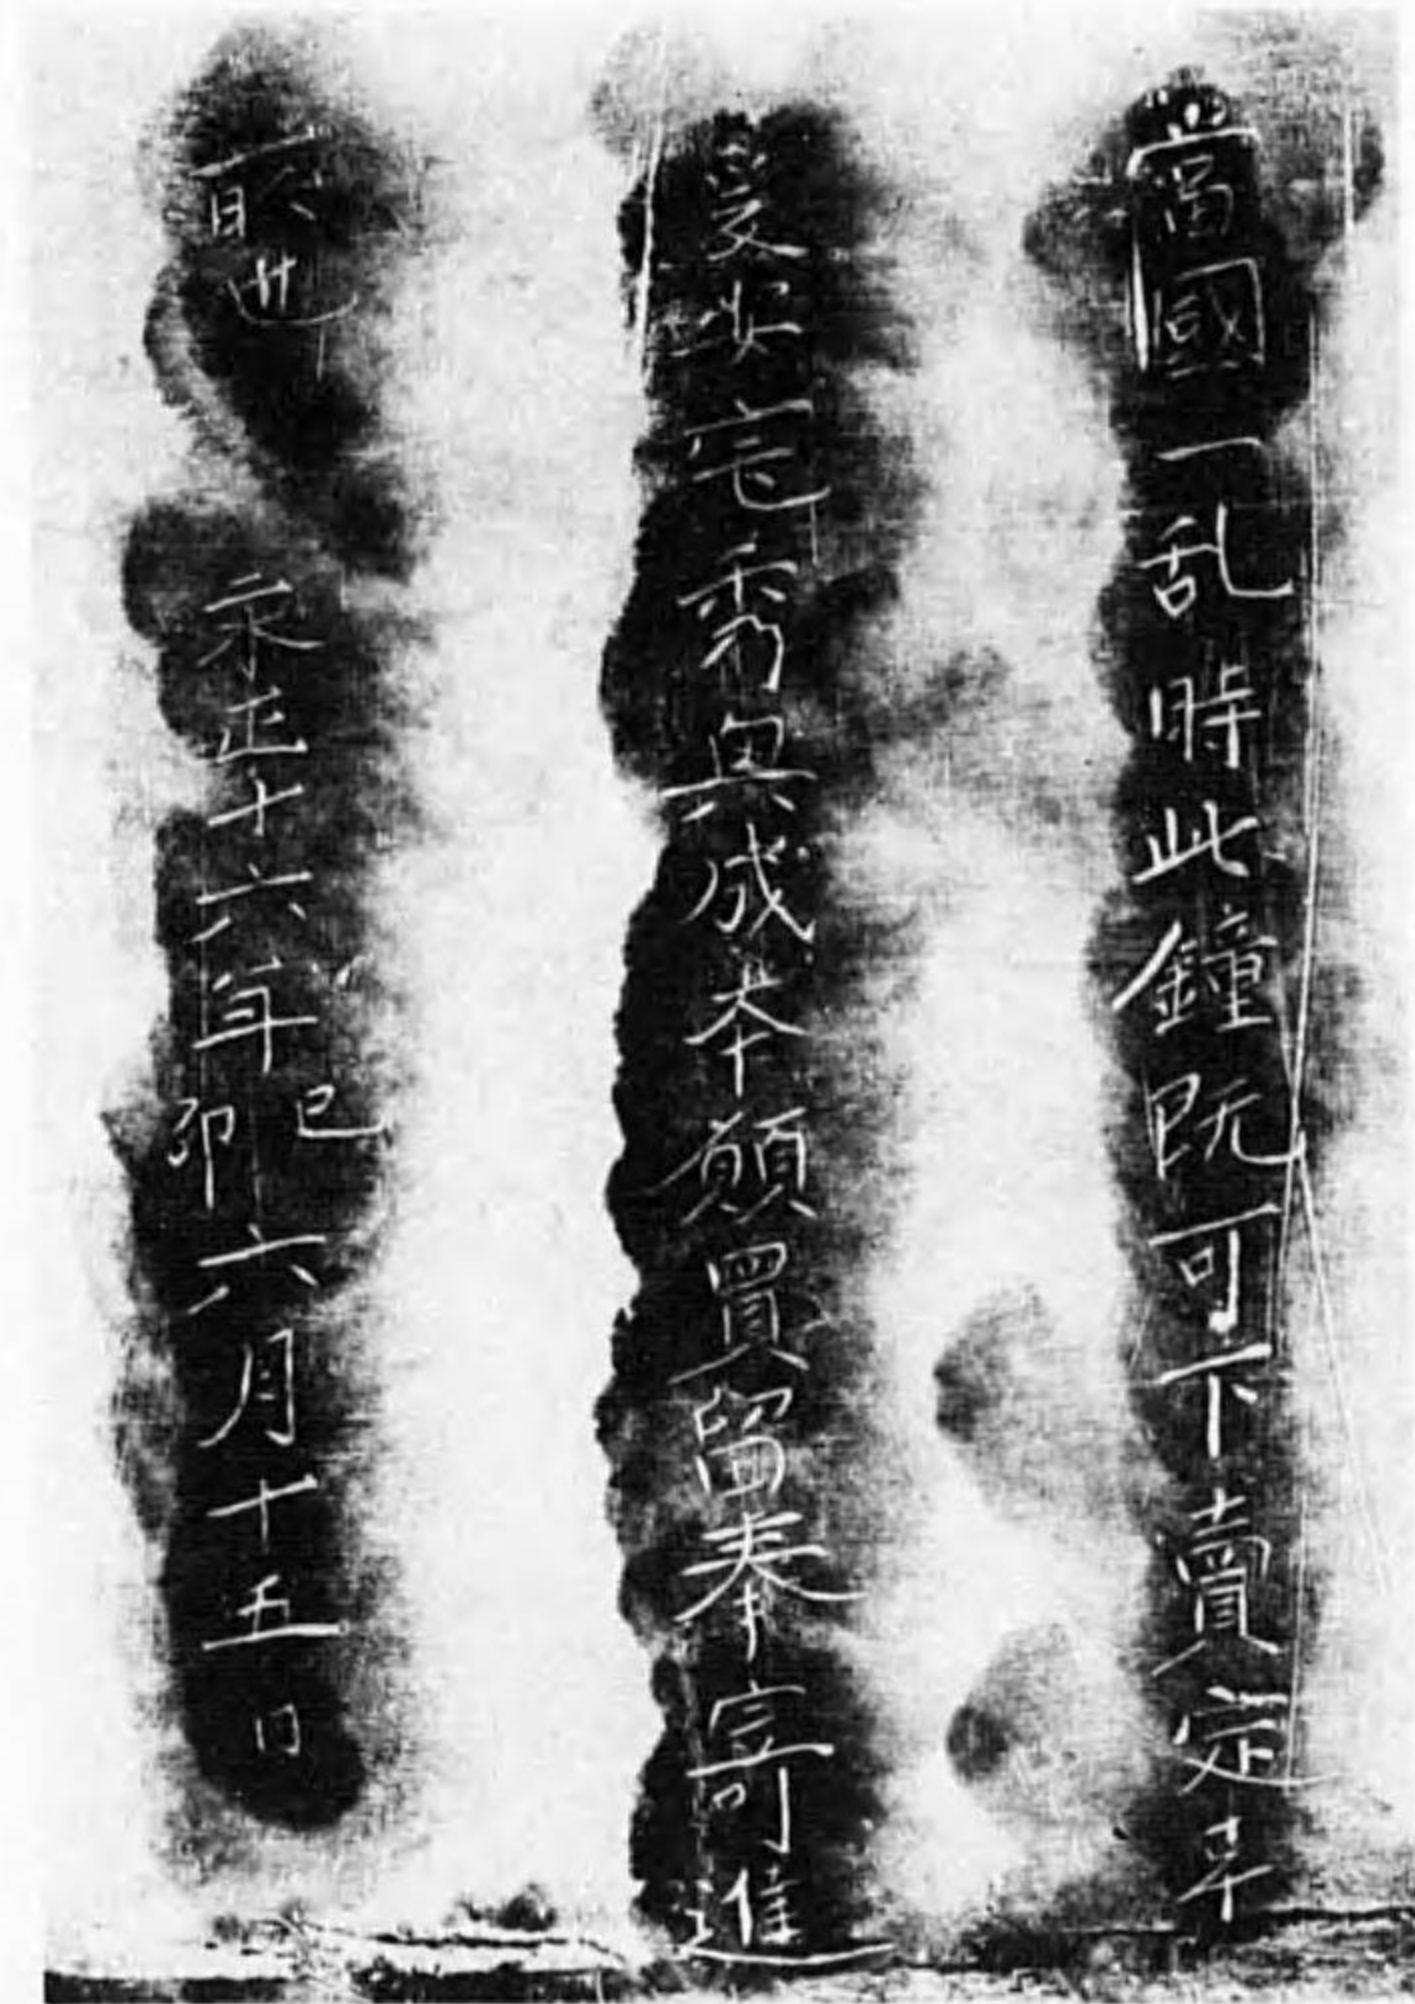 當國一乱時此鐘既可下賣定
爰安宅秀興成本願買留奉寄進
者也　永正十六年己卯六月十五日